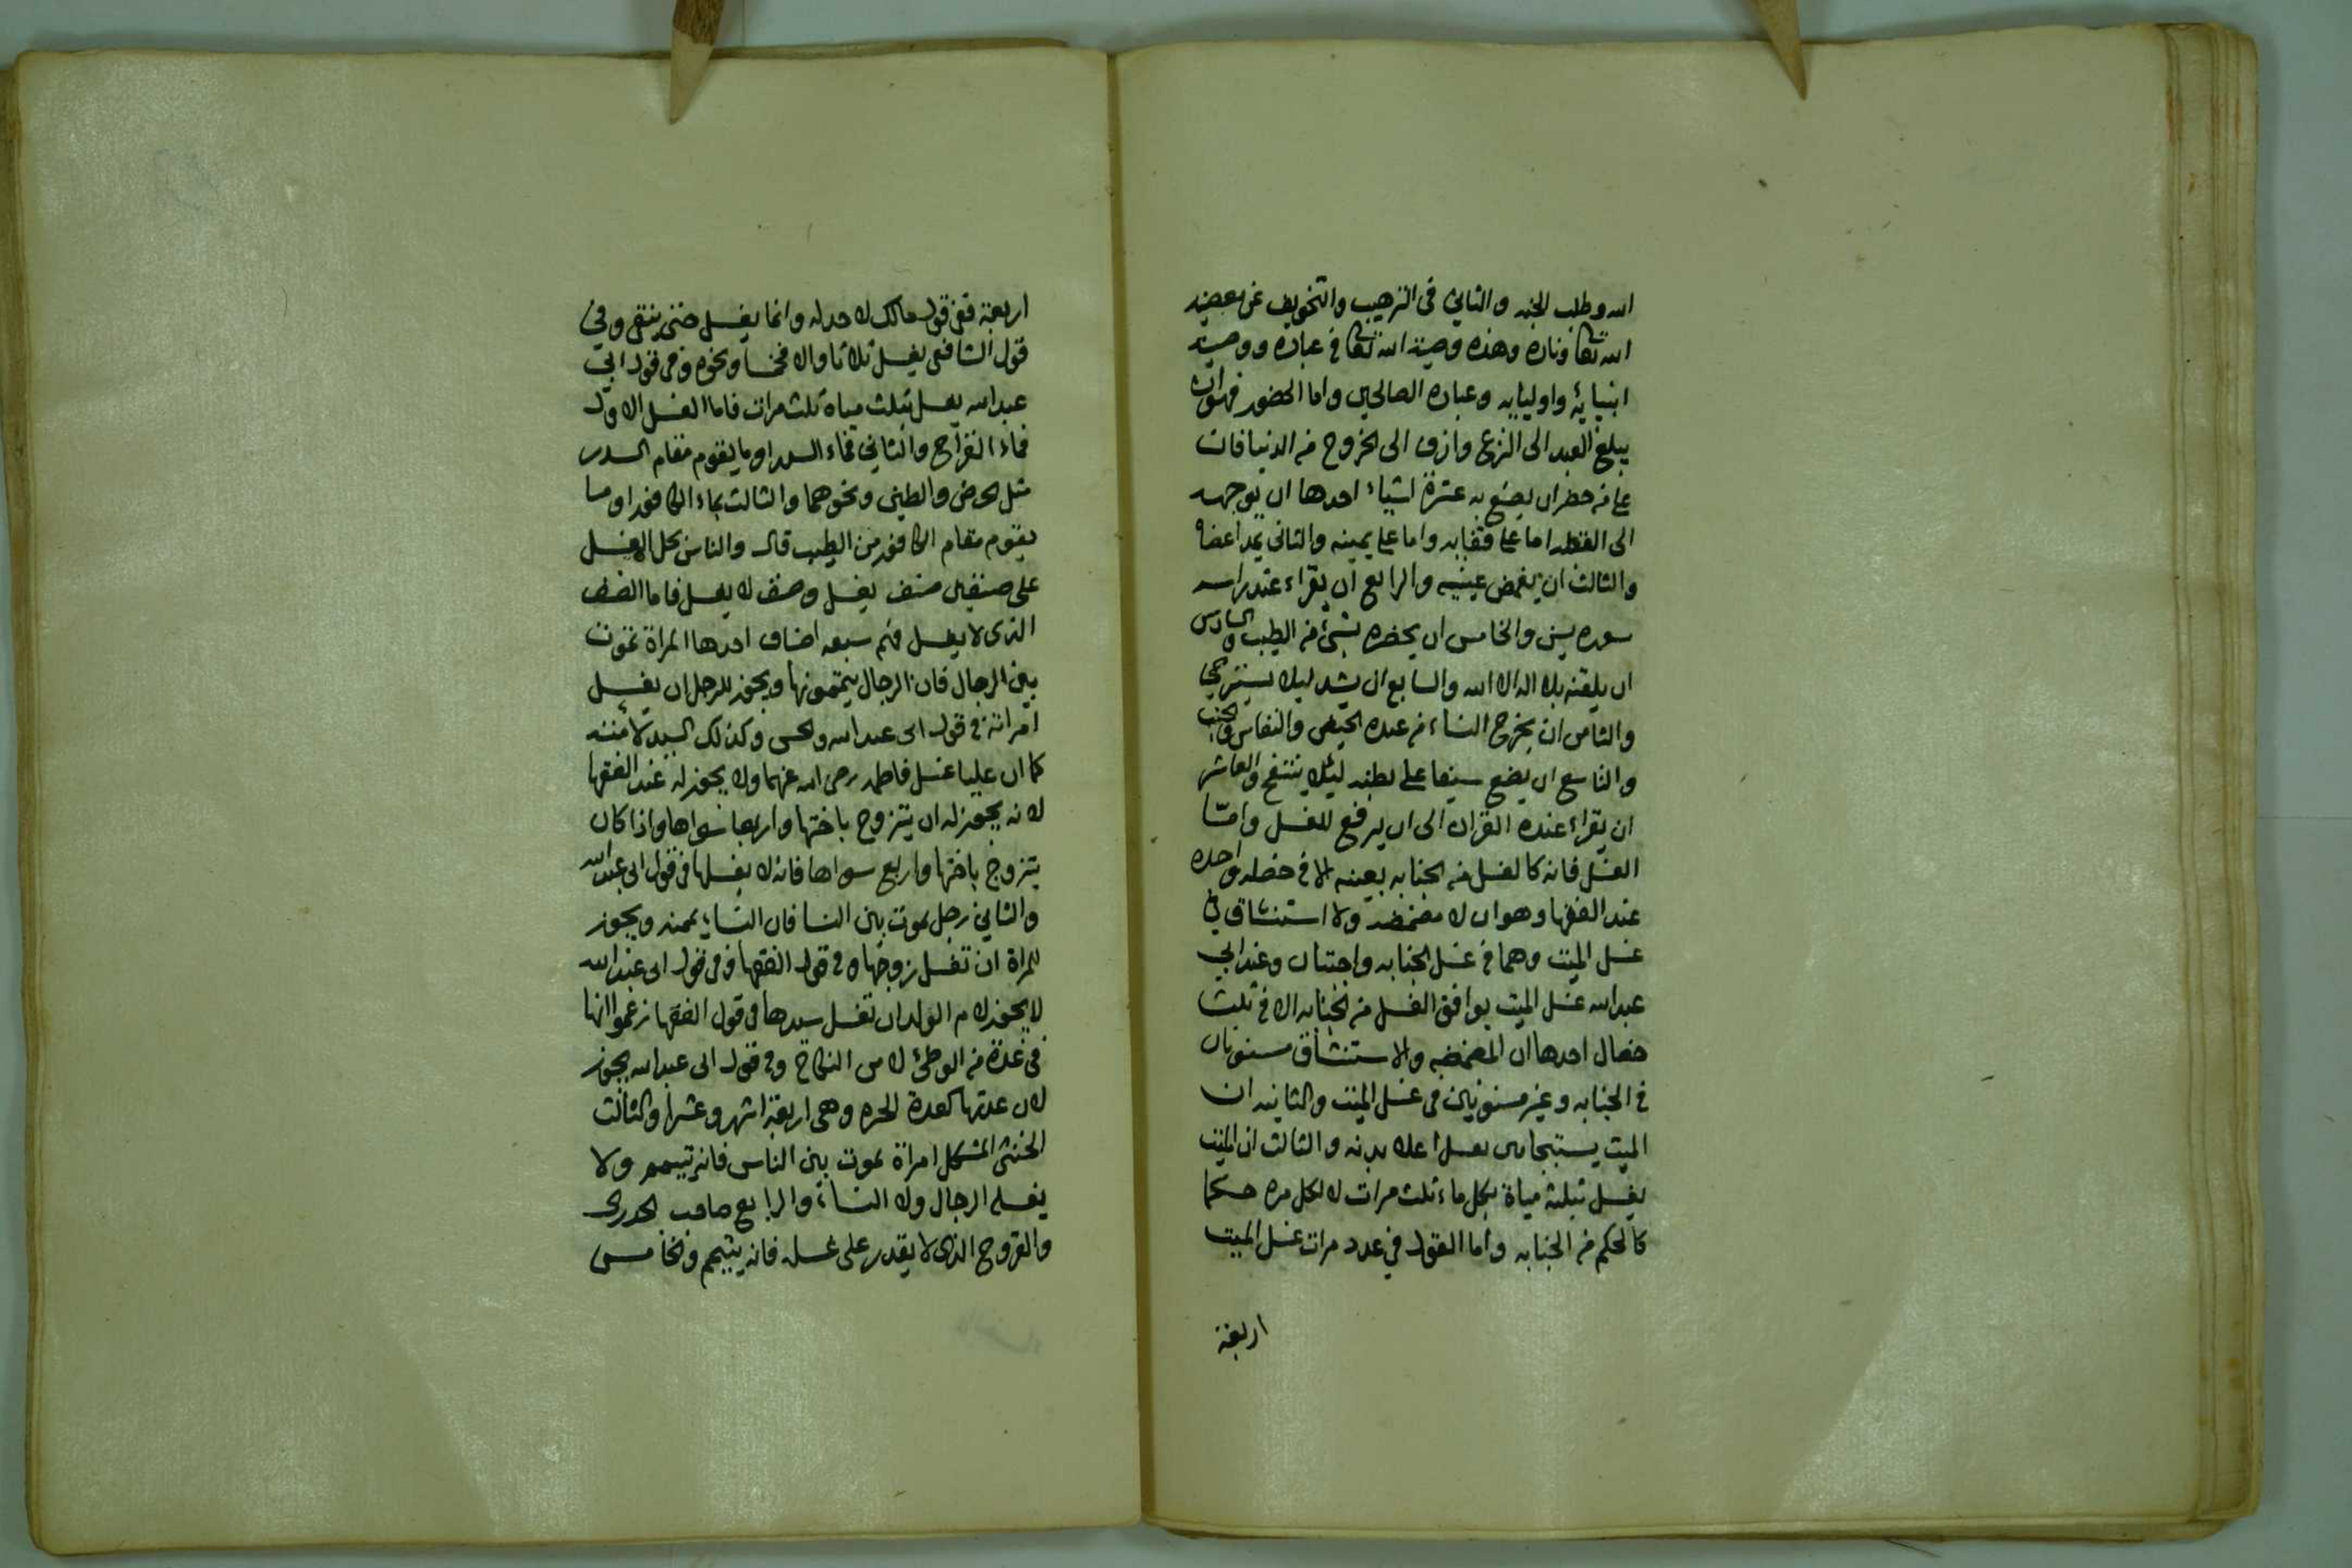 الله وطلب الجنه والثاني في الترهيب والتخويف عن معصيه
الله تعالى وناره وهذه وصية الله تعالى في عباده ووصية
انبيايه واوليايه وعباده الصالحين واما الحضور فهو ان
يبلغ العبد الى النزع وازف الى الخروج من الدنيا فان
على من حضر ان يصنع به عشرة اشياء احدها ان يوجهه
الى القبله اما على قفايه واما على يمينه والثاني يمد اعضاه
والثالث ان يغمض عينيه والرابع ان يقراء عند راسه
سوره يس والخامس ان يحضره بشيء من الطيب والسادس
ان يلقنه بلا اله الا الله والسابع ان يشد ليلا يسترخي
والثامن ان يخرج النساء من عنده الحيض والنفاس والجنب
والتاسع ان يضع سيفا على بطنه ليئلا ينتفخ والعاشر
ان يقراء عنده القران الى ان يرفع للغسل وامّا
الغسل فانه كالغسل من الجنابه بعينه الا في خصله واحده
عند الفقها وهو ان لا مضمضة ولا استنشاق في
غسل الميت وهما في غسل الجنابه واجبتان وعند ابي
عبدالله غسل الميت يوافق الغسل من الجنابه الا في ثلث
خصال احدها ان المضمضه والاستنشاق مسنونان
في الجنابه وغير مسنونين في غسل الميت والثانيه ان
الميت يستنجا من بعد اعلا بدنه والثالث ان الميت
يغسل بثلثة مياة بكل ماء ثلث مرات لا لكل مره حكما
كالحكم من الجنابه واما القول في عدد مرات غسل الميت
اربعة
اربعة ففي قول مالك لا حد له وانما يغسل حتى ينقى وفي
قول الشافعي يغسل ثلاثا والا فخمسا ونحوه وفي قول ابي
عبدالله يغسل بثلث مياة ثلث مرات فاما الغسل الاول
فماء القراح والثاني بماء السدر او ما يقوم مقام السدر
مثل الحرض والطين ونحوهما والثالث بماء الكافور او ما
يقوم مقام الكافور من الطيب قال والناس بحل الغسل
على صنفين صنف يغسل وصنف لا يغسل فاما الصنف
الذى لا يغسل فهم سبعه اصناف احدها المراة تموت
بين الرجال فان الرجال ييممونها ويجوز للرجل ان يغسل
امراته في قول ابي عبدالله والحسن وكذلك السيد لامته
كما ان عليا غسل فاطمه رضى الله عنهما ولا يجوز له عند الفقها
لانه يجوز له ان يتزوج باختها واربعا سواها واذا كان
يتزوج باختها واربع سواها فانه لا يغسلها في قول ابي عبدالله
والثاني رجل يموت بين النسا فان النساء ييممنه ويجوز
للمراة ان تغسل زوجها في قول الفقها وفي قول ابي عبدالله
لا يجوز لام الولد ان تغسل سيدها في قول الفقها زعموا انها
في عدة من الوطئ لا من النكاح وفي قول ابي عبدالله يجوز
لان عدتها كعدة الحره وهي اربعة اشهر وعشرا والثالث
الخنثى المشكل امراة يموت بين الناس فانه ييمم ولا
يغسله الرجال ولا النساء والرابع صاحب الجدري
والقروح الذى لا يقدر على غسله فانه ييمم والخامس